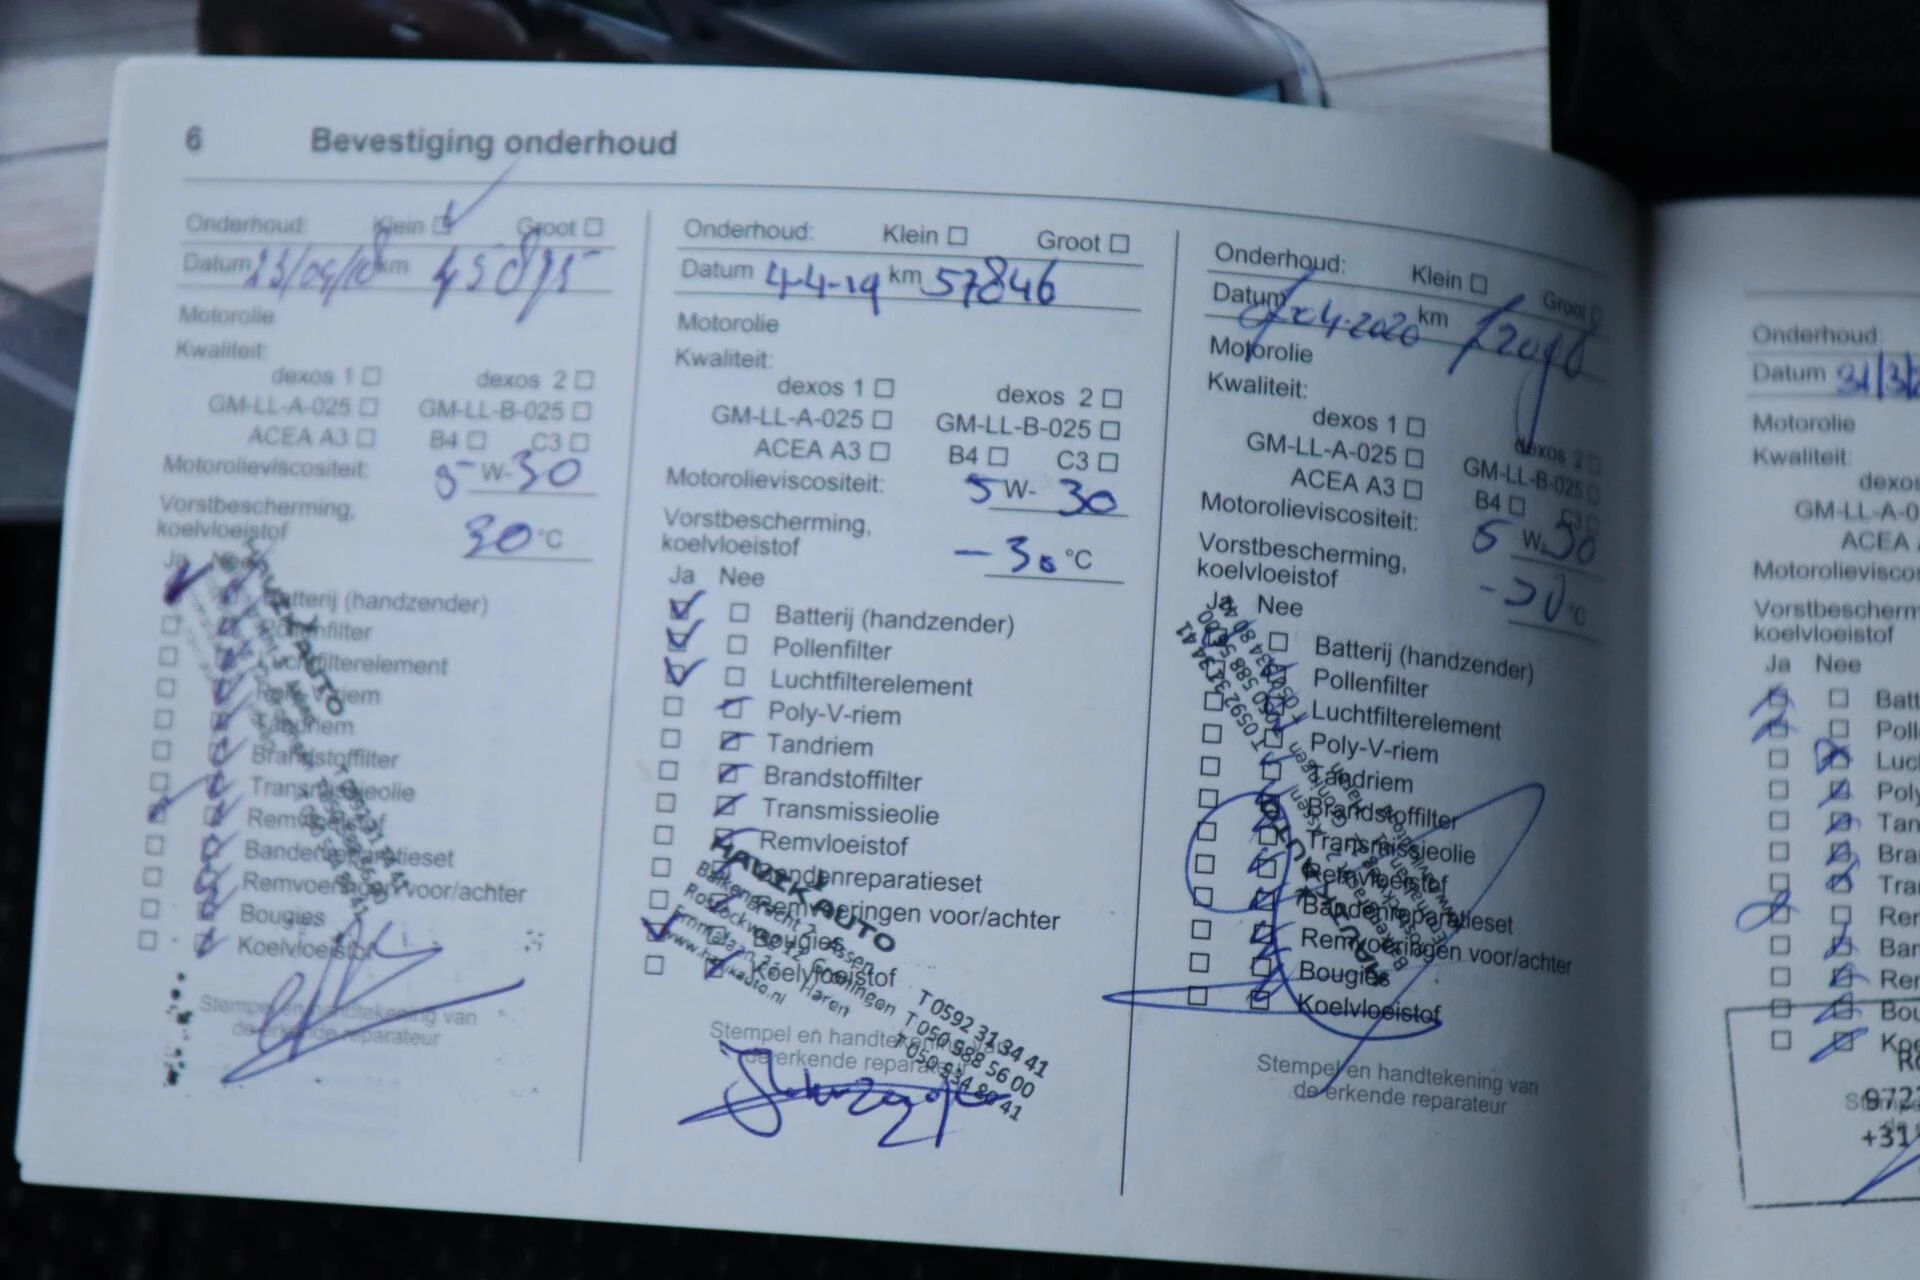 6 Bevestiging onderhoud
Onderhoud: Klein Groot
Datum 23/04/18 km 45895
Motorolie
Kwaliteit:
dexos 1 dexos 2
GM-LL-A-025 GM-LL-B-025
ACEA A3 B4 C3
Motorolieviscositeit: 5 W- 30
Vorstbescherming,
koelvloeistof 30 °C
Ja Nee
Batterij (handzender)
Pollenfilter
Luchtfilterelement
Poly-V-riem
Tandriem
Brandstoffilter
Transmissieolie
Remvloeistof
Bandenreparatieset
Remvoeringen voor/achter
Bougies
Koelvloeistof
Stempel en handtekening van
de erkende reparateur
Onderhoud: Klein Groot
Datum 4-4-19 km 57846
Motorolie
Kwaliteit:
dexos 1 dexos 2
GM-LL-A-025 GM-LL-B-025
ACEA A3 B4 C3
Motorolieviscositeit: 5 W- 30
Vorstbescherming,
koelvloeistof -30 °C
Ja Nee
Batterij (handzender)
Pollenfilter
Luchtfilterelement
Poly-V-riem
Tandriem
Brandstoffilter
Transmissieolie
Remvloeistof
Bandenreparatieset
Remvoeringen voor/achter
Bougies
Koelvloeistof
HAVIK AUTO
Balkengracht 2, Assen T 0592 31 34 41
Rostockweg 12, Groningen T 050 588 56 00
Emmalaan 21, Haren T 050 534 80 41
www.havikauto.nl
Stempel en handtekening van
de erkende reparateur
Onderhoud: Klein Groot
Datum 4-2020 km
Motorolie
Kwaliteit:
dexos 1 dexos 2
GM-LL-A-025 GM-LL-B-025
ACEA A3 B4 C3
Motorolieviscositeit: 5 W- 30
Vorstbescherming,
koelvloeistof -30 °C
Ja Nee
Batterij (handzender)
Pollenfilter
Luchtfilterelement
Poly-V-riem
Tandriem
Brandstoffilter
Transmissieolie
Remvloeistof
Bandenreparatieset
Remvoeringen voor/achter
Bougies
Koelvloeistof
HAVIK AUTO
T 0592 31 34 41
T 050 588 56 00
T 050 534 80 41
Stempel en handtekening van
de erkende reparateur
Onderhoud:
Datum 31/3/2
Motorolie
Kwaliteit:
dexos
GM-LL-A-0
ACEA
Motorolieviscos
Vorstbescherm
koelvloeistof
Ja Nee
Batt
Poll
Luc
Poly
Tan
Bra
Tra
Rem
Ban
Rem
Bou
Koe
972
+31